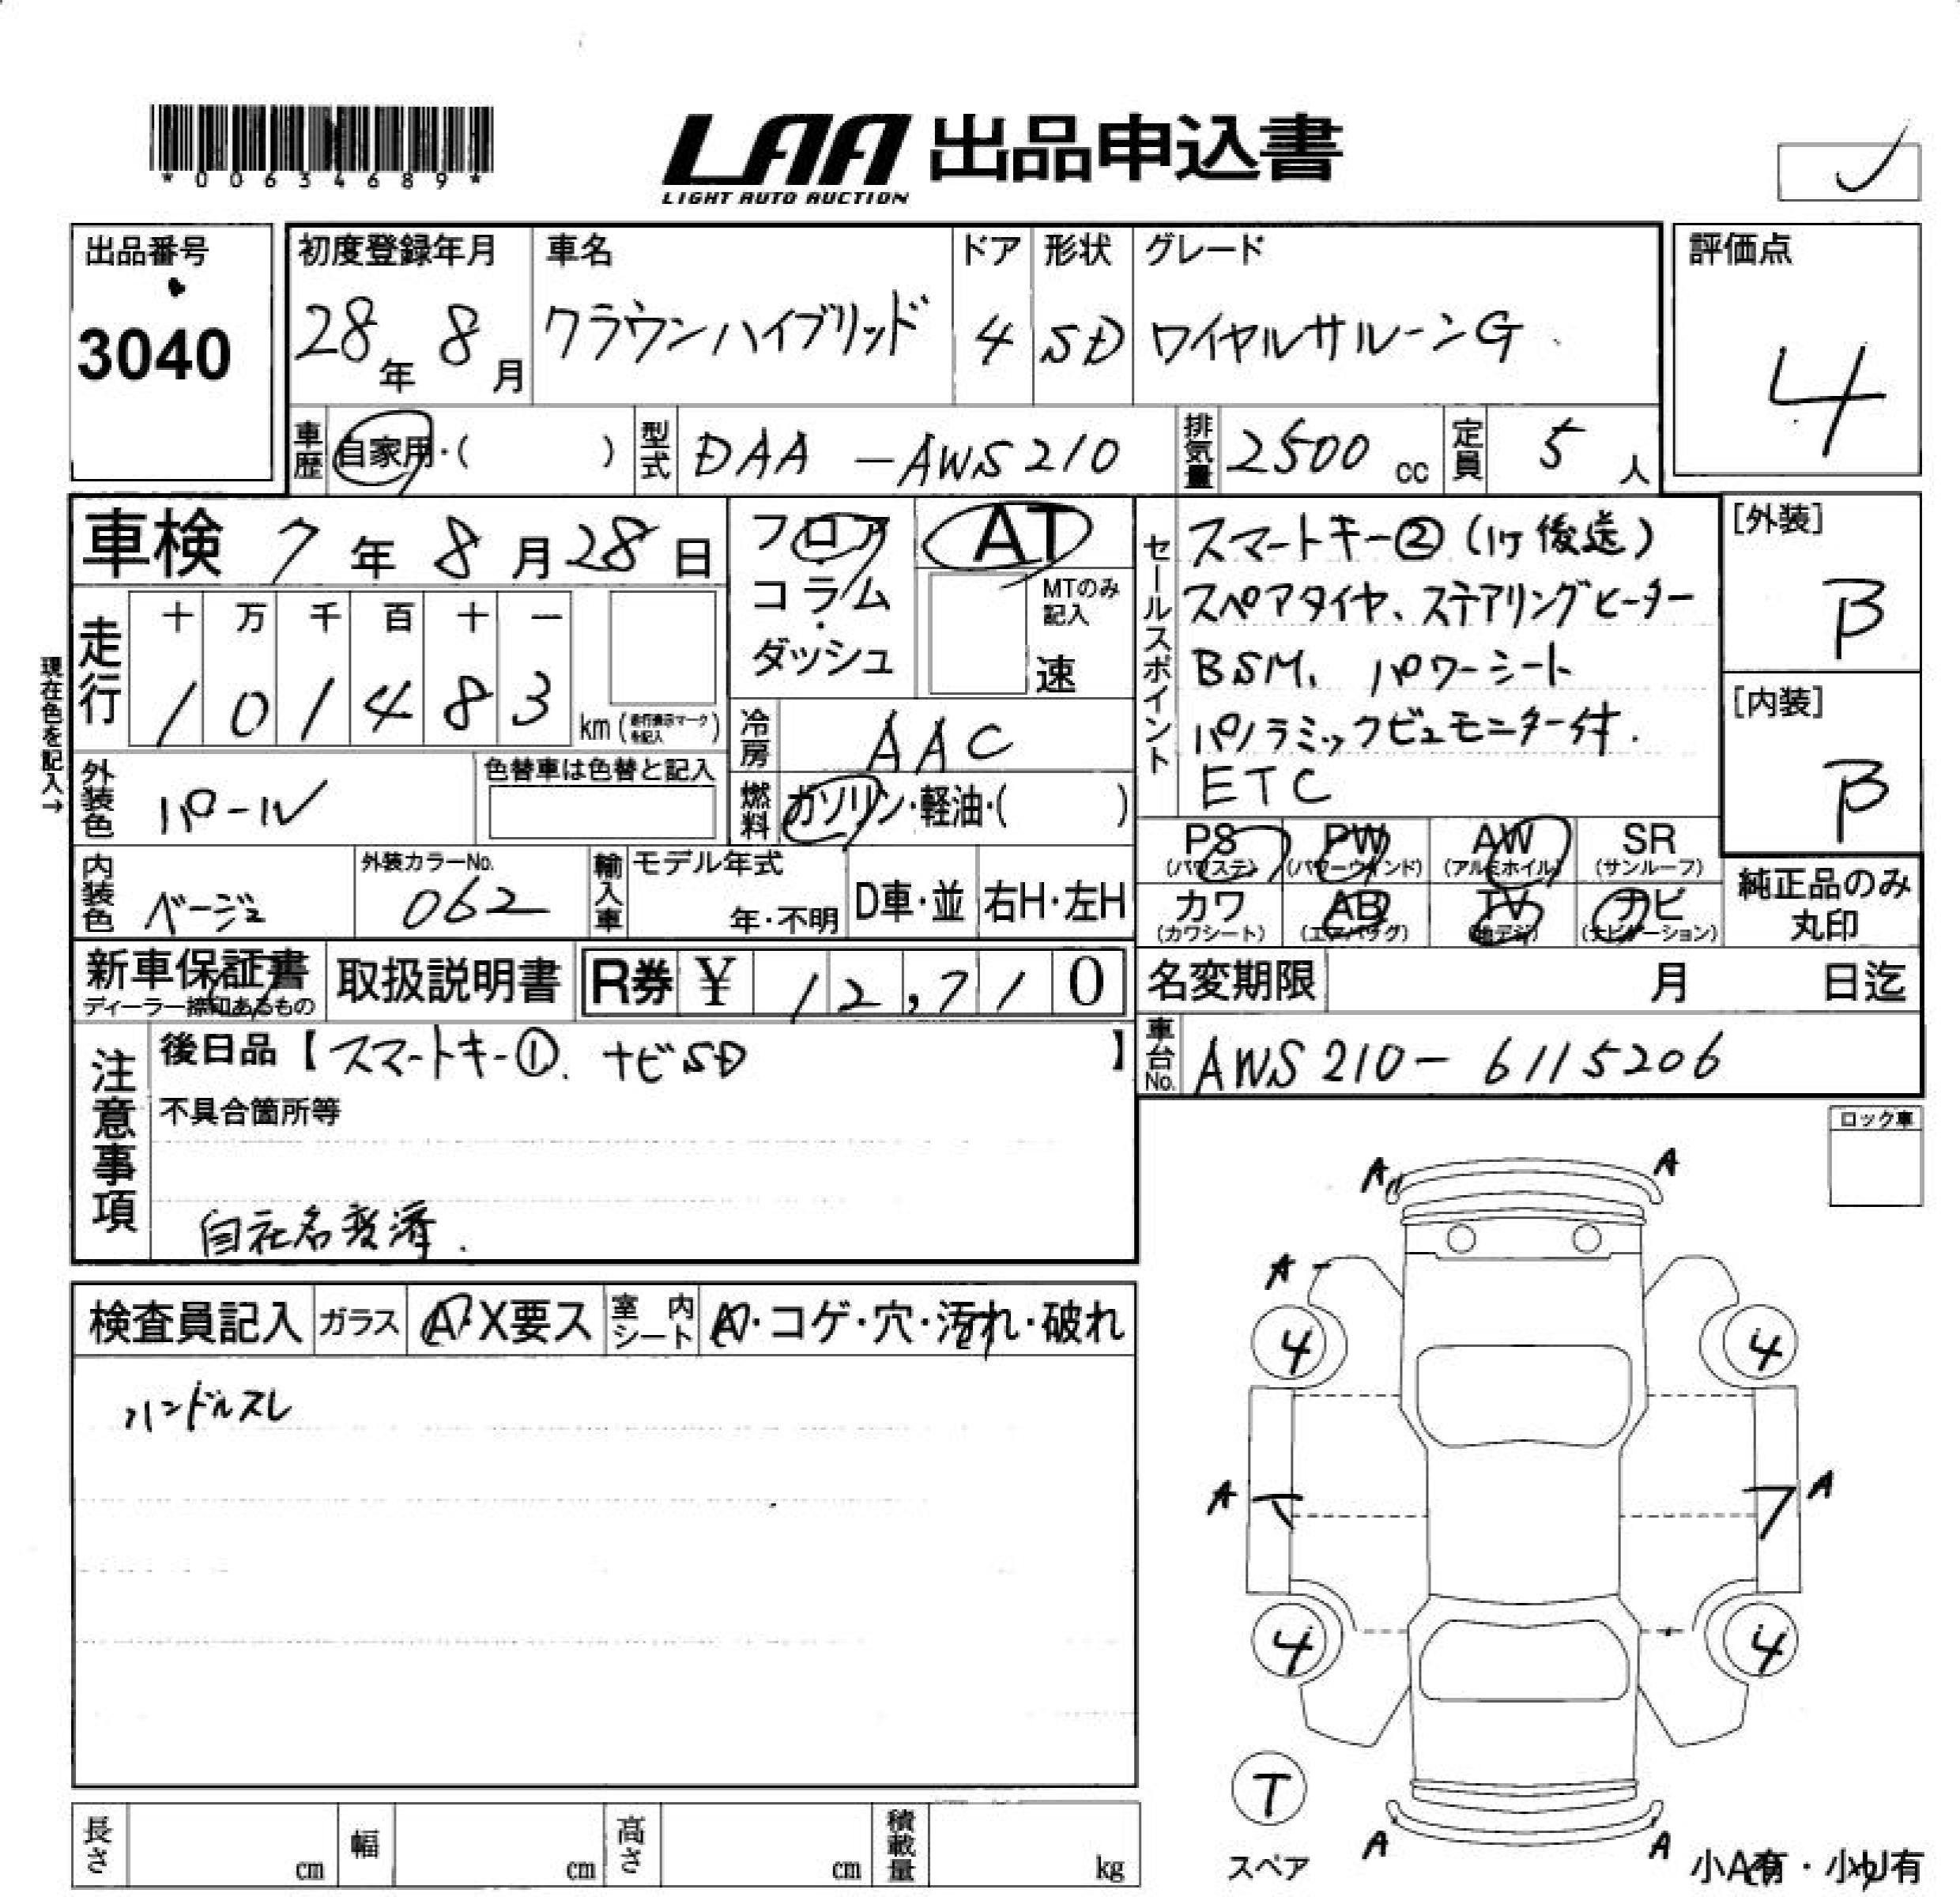 *00634689*
LAA 出品申込書
LIGHT AUTO AUCTION
出品番号
3040
初度登録年月
28年 8月
車名
クラウンハイブリッド
ドア
4
形状
SD
グレード
ロイヤルサルーンG
評価点
4
車歴 自家用・( )
型式 DAA-AWS210
排気量 2500 cc
定員 5 人
車検 7年 8月 28日
現在色を記入→
走行
十 万 千 百 十 一
1 0 1 4 8 3
km(走行表示マークを記入)
フロア
コラム
・
ダッシュ
AT
MTのみ記入
速
冷房 AAC
燃料 ガソリン・軽油・( )
外装色 パール
色替車は色替と記入
内装色 ベージュ
外装カラーNo.
062
輸入車
モデル年式
年・不明
D車・並
右H・左H
セールスポイント
スマートキー②(1ケ後送)
スペアタイヤ、ステアリングヒーター
BSM、パワーシート
パノラミックビュモニター付.
ETC
[外装]
B
[内装]
B
PS (パワステ)
PW (パワーウインド)
AW (アルミホイル)
SR (サンルーフ)
カワ (カワシート)
AB (エアバッグ)
TV (地デジ)
ナビ (ナビゲーション)
純正品のみ
丸印
新車保証書
ディーラー捺印あるもの
取扱説明書
R券 ¥ 12,710
名変期限 月 日迄
車台No. AWS210-6115206
注意事項
後日品【スマートキー①. ナビSD】
不具合箇所等
自社名変済.
ロック車
検査員記入
ガラス A・X要ス
室内シート A・コゲ・穴・汚れ・破れ
ハンドルスレ
A A
A
4 4
A A
4 4
T
スペア
A A
小A有・小U有
長さ cm
幅 cm
高さ cm
積載量 kg